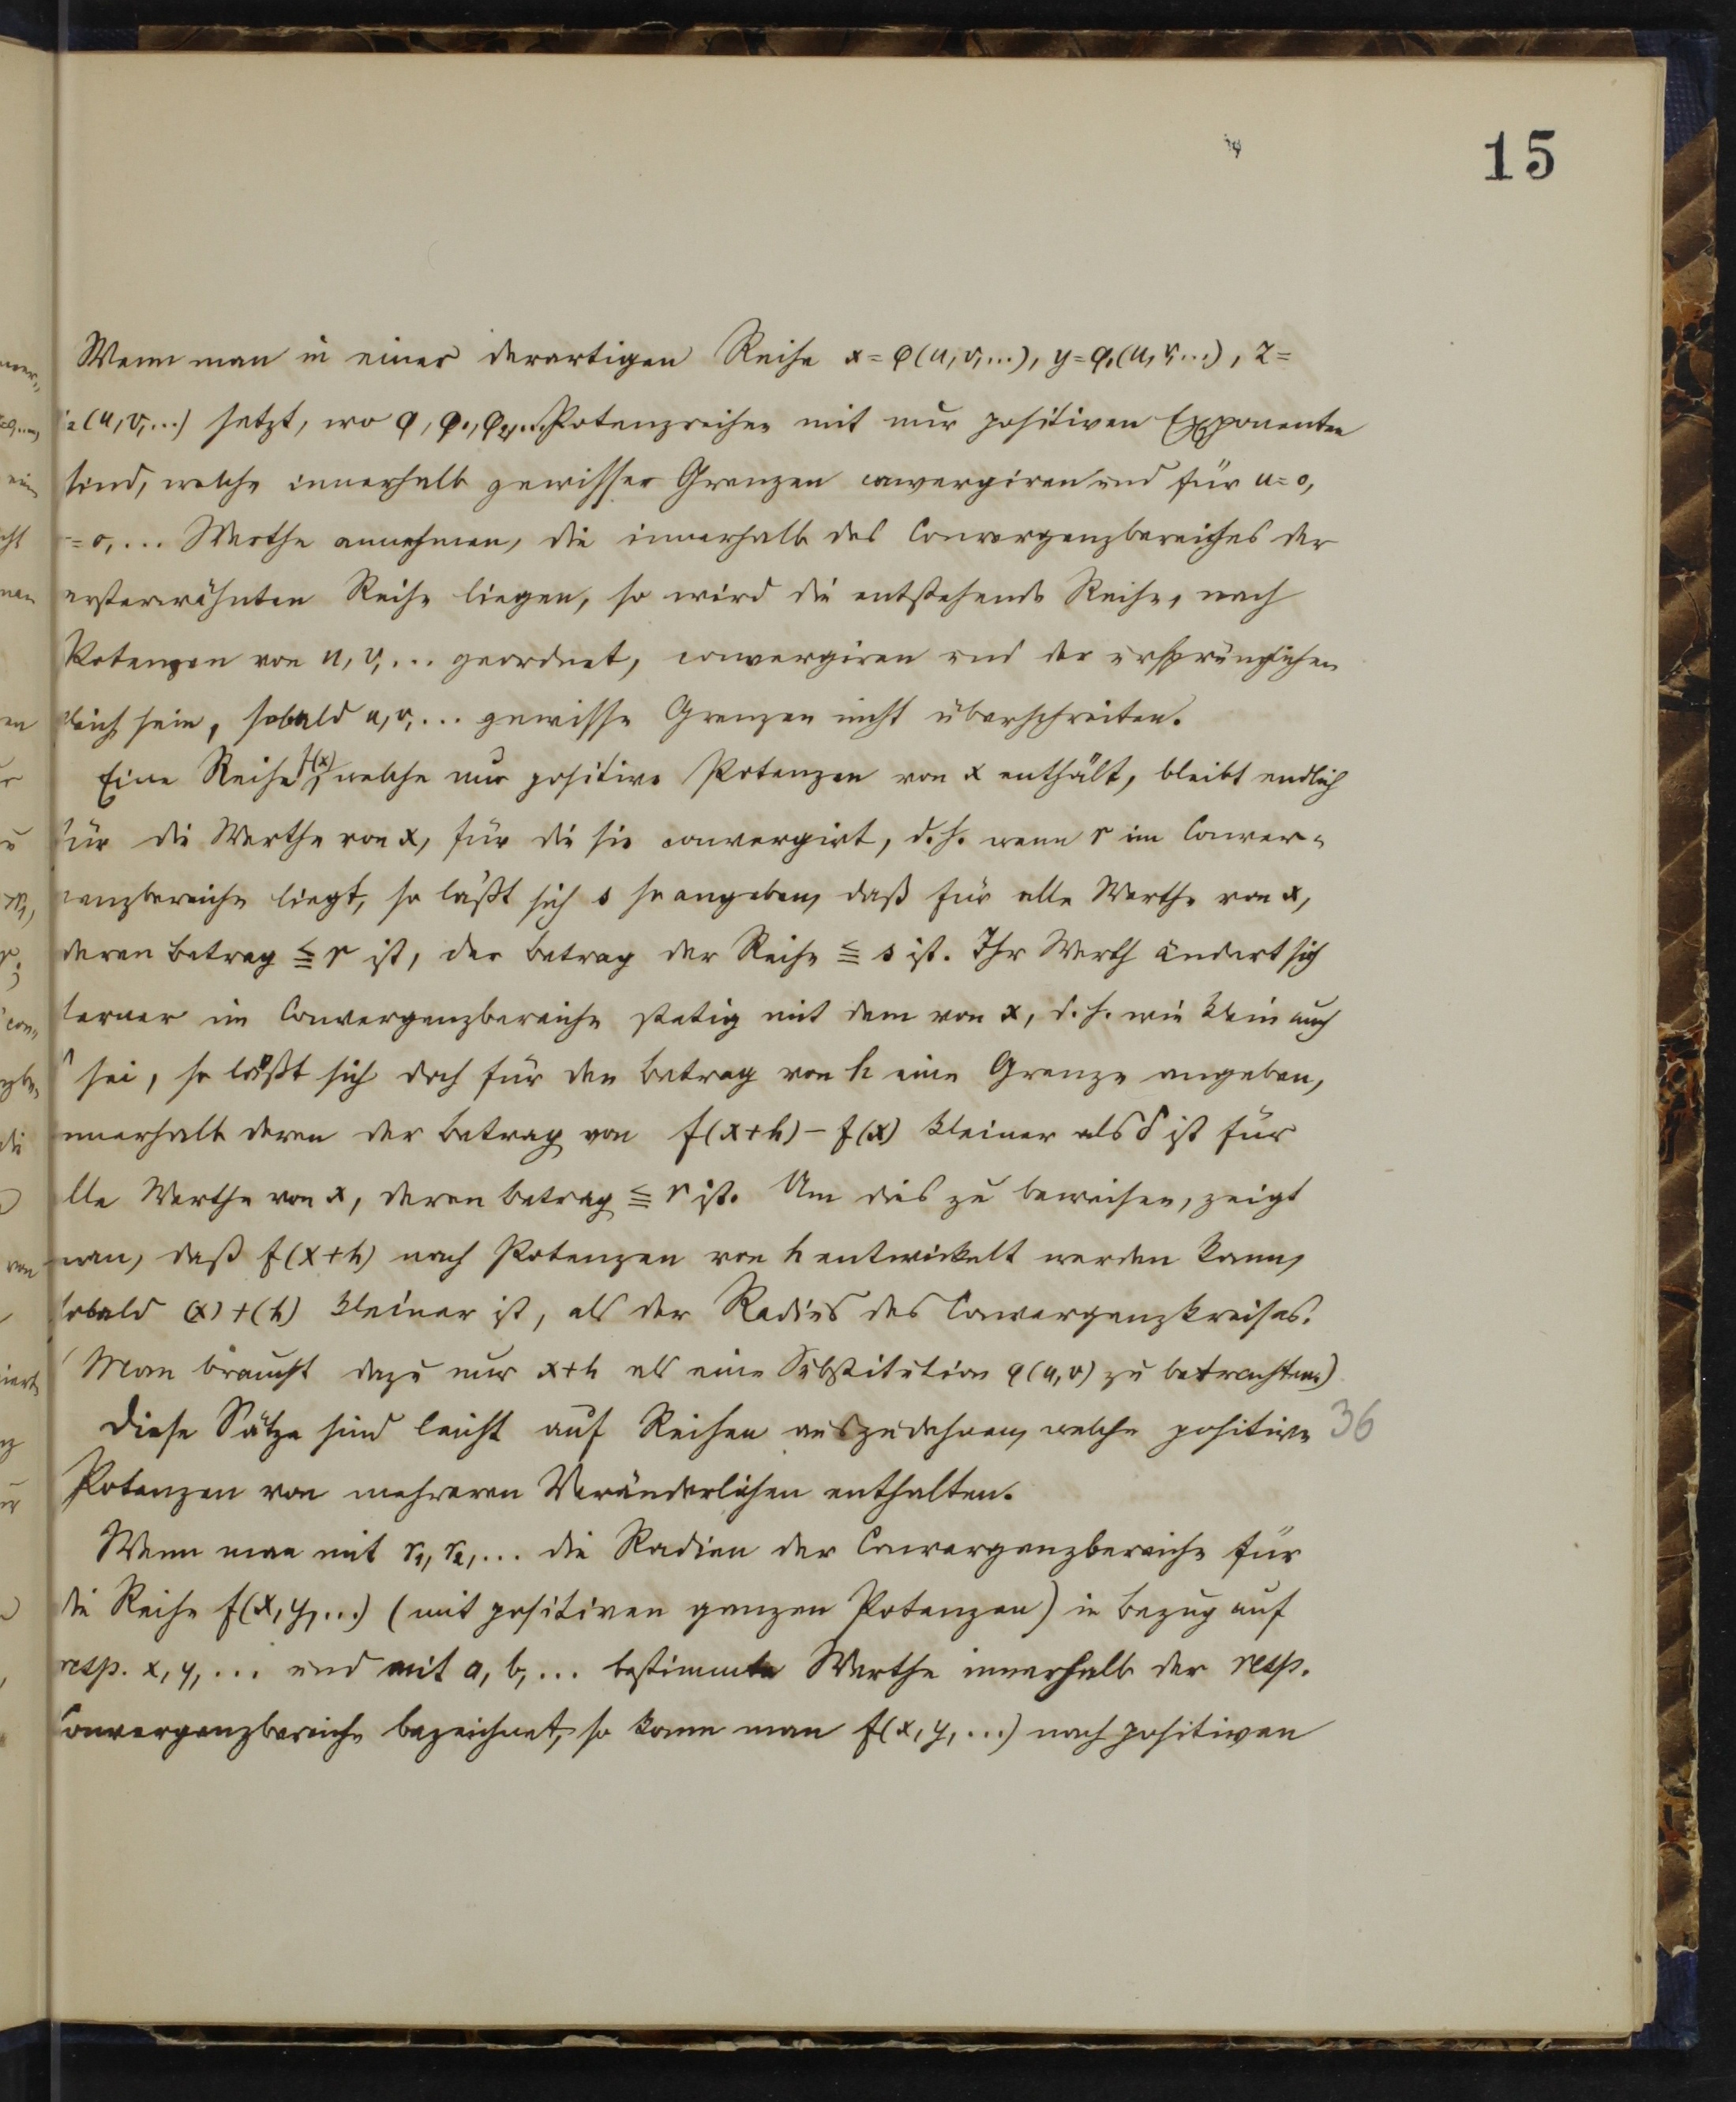 15
Wenn man in einer derartigen Reihe x = φ(u,v,...), y = φ₁(u,v,...), z =
₂(u,v,...) setzt, wo φ, φ₁, φ₂,... Potenzreihen mit nur positiven Exponenten
sind, welche innerhalb gewisser Grenzen convergiren und für u=0,
=0,... Werthe annehmen, die innerhalb des Convergenzbereiches der
ersterwähnten Reihe liegen, so wird die entstehende Reihe, nach
Potenzen von u, v,... geordnet, convergiren und der ursprünglichen
gleich sein, sobald u,v,... gewisse Grenzen nicht überschreiten.
Eine Reihe f(x), welche nur positive Potenzen von x enthält, bleibt endlich
für die Werthe von x, für die sie convergirt, d.h. wenn r im Conver-
genzbereiche liegt, so läßt sich s so angeben, daß für alle Werthe von x,
deren Betrag ≦ r ist, der Betrag der Reihe ≦ s ist. Ihr Werth ändert sich
ferner im Convergenzbereiche stetig mit dem von x, d.h. wie klein auch
δ sei, so läßt sich doch für den Betrag von h eine Grenze angeben,
innerhalb deren der Betrag von f(x+h) − f(x) kleiner als δ ist für
alle Werthe von x, deren Betrag ≦ r ist. Um dies zu beweisen, zeigt
man, daß f(x+h) nach Potenzen von h entwickelt werden kann,
sobald (x)+(h) kleiner ist, als der Radius des Convergenzkreises.
(Man braucht dazu nur x+h als eine Substitution φ(u,v) zu betrachten.)
Diese Sätze sind leicht auf Reihen auszudehnen, welche positive 36
Potenzen von mehreren Veränderlichen enthalten.
Wenn man mit r₁, r₂,... die Radien der Convergenzbereiche für
die Reihe f(x,y,...) (mit positiven ganzen Potenzen) in Bezug auf
resp. x, y,... und mit a, b,... bestimmte Werthe innerhalb der resp.
Convergenzbereiche bezeichnet, so kann man f(x,y,...) nach positiven